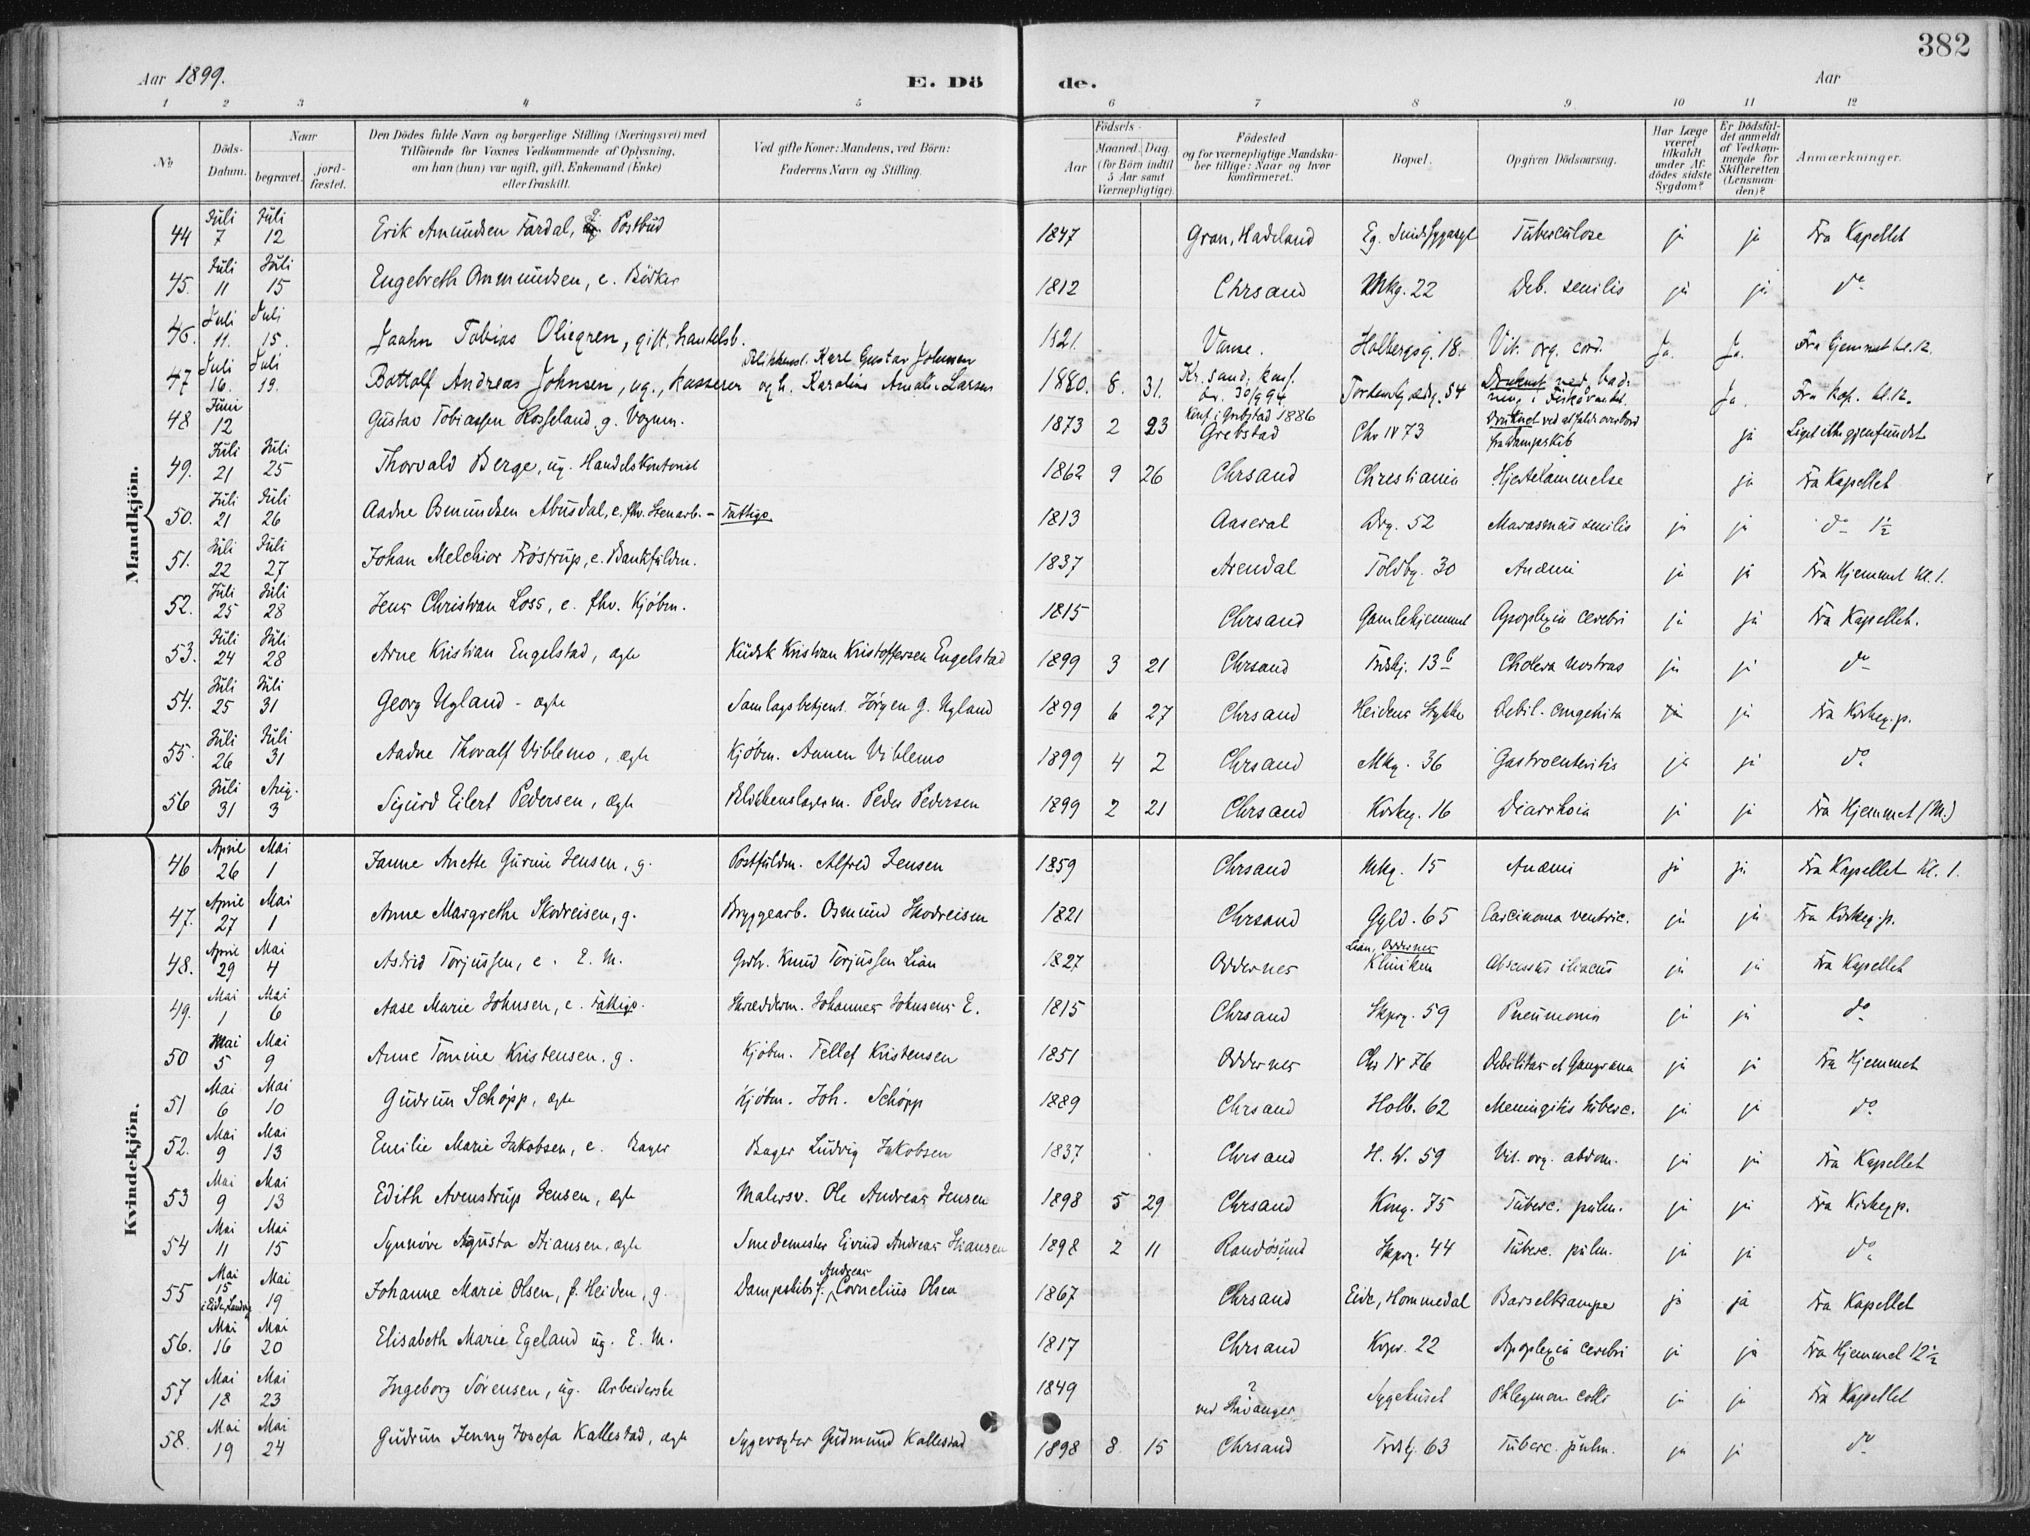 382
Aar 1899. E. Dö de. Aar
1 2 3 4 5 6 7 8 9 10 11 12
No Döds-Datum. Naar begravet. jordfæstet. Den Dödes fulde Navn og borgerlige Stilling (Næringsvei) med Tilföiende for Voxnes Vedkommende af Oplysning, om han (hun) var ugift, gift, Enkemand (Enke) eller fraskilt. Ved gifte Koner: Mandens, ved Börn: Faderens Navn og Stilling. Födsels- Aar Maaned. Dag. (for Börn indtil 5 Aar samt Værnepligtige). Födested og for værnepligtige Mandskaber tillige: Naar og hvor konfirmeret. Bopæl. Opgiven Dödsaarsag. Har Læge været tilkaldt under Afdödes sidste Sygdom? Er Dödsfaldet anmeldt af Vedkommende for Skifteretten (Lensmanden)? Anmærkninger.
Mandkjön.
44 Juli 7 Juli 12 Erik Amundsen Fardal, Postbud 1847 Gran, Hadeland Eg. Tuberculose ja ja Fra Kapellet
45. Juli 11 Juli 15 Engebreth Ommundsen, e. Bödker 1812 Chrsand Mkg. 22 Deb. senilis ja ja do
46. Juli 11. Juli 15. Jaahn Tobias Oliegren, gift, handelsb. 1821. Vanse. Holbergsg. 18. Vit. org. cord. Ja. Ja. Fra Hjemmet kl. 12.
47 Juli 16. Juli 19. Bottolf Andreas Johnsen, ug., kasserer Blikkensl. Karl Gustav Johnsen og h. Karoline Amalie Larsen 1880. 8. 31. Kr.sand, konf. 30/9 94 Tordenskjoldsg. 54 Druknet ved badning i Ja. Fra Kap. kl. 12.
48 Juni 12 Gustav Tobiassen Rosseland g. Vognm. 1873 2 23 Konf. i Grebstad 1886 Grebstad Chr IV 73 Druknet ved at falde overbord fra Dampskib ja Liget ikke gjenfundet
49. Juli 21 Juli 25 Thorvald Berge, ug. Handelskontorist 1862 9 26 Chrsand Christiania Hjertelammelse ja Fra Kapellet
50. Juli 21 Juli 26 Aadne Osmundsen Abusdal, e. fhv. Stenarb. - Fattigo. 1813 Aaseral Drg. 52 Marasmus senilis ja ja do 1½
51. Juli 22 Juli 27 Johan Melchior Fröstrup, e. Bankfuldm. 1837 Arendal Toldbg. 30 Anæmi ja ja Fra Hjemmet kl. 1.
52. Juli 25 Juli 28 Jens Christian Loss, e. fhv. Kjöbm. 1815 Chrsand Gamlehjemmet Apoplexia cerebri ja ja Fra Kapellet.
53. Juli 24 Juli 28 Arne Kristian Engelstad, ægte Kudsk Kristian Kristoffersen Engelstad 1899 3 21 Chrsand 13 Cholera nostras ja ja do
54. Juli 25 Juli 31 Georg Ugland - ægte Samlagsbetjent. Jörgen G. Ugland 1899 6 27 Chrsand Heidens Stykke Debil. congenita ja ja Fra Kirkeg.p.
55. Juli 26 Juli 31 Aadne Thoralf Viblemo, ægte Kjöbm. Aanen Viblemo 1899 4 2 Chrsand Mkg. 36 Gastroenteritis ja ja do
56 Juli 31 Aug. 3 Sigurd Eilert Pedersen, ægte Blikkenslagerm. Peder Pedersen 1899 2 21 Chrsand Kirkeg. 16 Diarrhoia ja ja Fra Hjemmet (M.)
Kvindekjön.
46 April 26 Mai 1 Janne Anette Gurine Jensen, g. Postfuldm. Alfred Jensen 1859 Chrsand Mkg. 15 Anæmi ja ja Fra Kapellet Kl. 1.
47. April 27 Mai 1 Anne Margrethe Skodreisen, g. Bryggearb. Osmund Skodreisen 1821 Chrsand Gyld. 65 Carcinoma ventric. ja ja Fra Kirkeg.p.
48. April 29 Mai 4 Astrid Torjussen, e. E. M. Grbr. Knud Torjussen Lian 1827 Oddernes Lian, Oddernes Kliniken Abscessus iliacus ja ja Fra Kapellet
49. Mai 1 Mai 6 Aase Marie Johnsen, e. Fattigo. Skrædderm. Johannes Johnsens E. 1815 Chrsand Skprg. 59 Pneumonia ja ja do
50 Mai 5 Mai 9 Anne Tomine Kristensen. g. Kjöbm. Tellef Kristensen 1851 Oddernes Chr IV 76 Debilitas et Gangræna ja ja Fra Hjemmet
51 Mai 6 Mai 10 Gudrun Schöpp, ægte Kjöbm. Joh. Schöpp 1889 Chrsand Holb. 62 Meningitis tuberc. ja ja do
52. Mai 9 Mai 13 Emilie Marie Jakobsen, e. Bager Bager Ludvig Jakobsen 1837 Chrsand H. W. 59 Vit. org. abdom. ja ja Fra Kapellet
53 Mai 9 Mai 13 Edith Avenstrup Jensen, ægte Malersv. Ole Andreas Jensen 1898 5 29 Chrsand Kong. 75 Tuberc. pulm. ja ja Fra Kirkeg.p.
54 Mai 11 Mai 15 Synnöve Augusta Hansen, ægte Smedemester Eivind Andreas Hansen 1898 2 11 Randösund Skprg. 44 Tuberc. pulm. ja ja do
55 Mai 15 i Eide, Landvig Mai 19 Johanne Marie Olsen, f. Heiden, g. Dampskibsf. Andreas Cornelius Olsen 1867 Chrsand Eide, Hommedal Barselkrampe ja ja Fra Kapellet
56. Mai 16 Mai 20 Elisabeth Marie Egeland ug. E. M. 1817 Chrsand 22 Apoplexia cerebri ja ja Fra Hjemmet 12½
57 Mai 18 Mai 23 Ingeborg Sörensen, ug. Arbeiderske 1849 ? ved Stavanger Sygehuset Phlegmon colli ja ja Fra Kapellet
58. Mai 19 Mai 24 Gudrun Jenny Josefa Kallestad, ægte Sygevogter Gudmund Kallestad 1898 8. 15 Chrsand 63 Tuberc. pulm. ja ja do